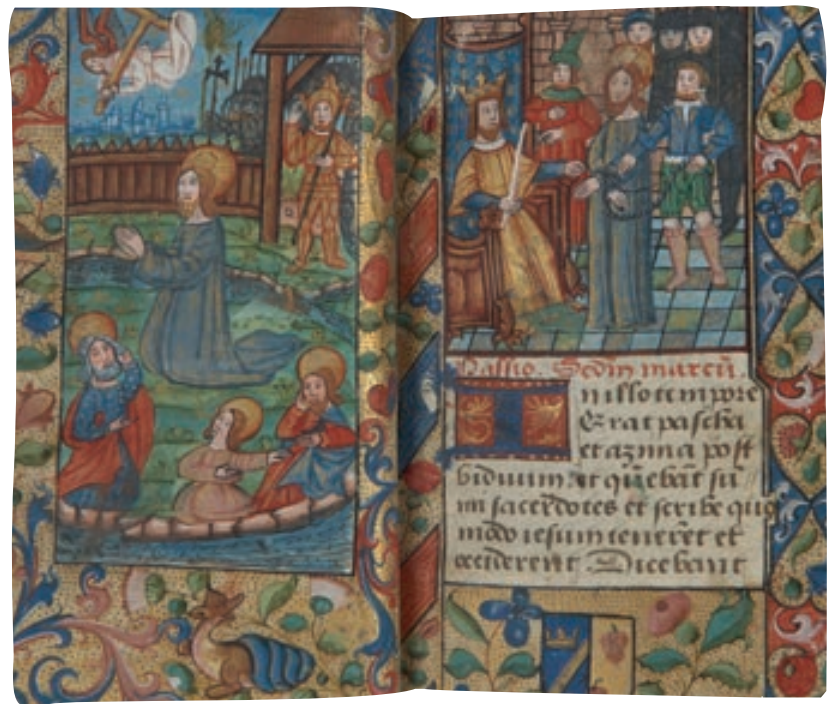 Passio. Scdm marcū.
In illo tempore
Erat pascha
et azima post
biduum et querebāt sū
mi sacerdotes et scribe quo
modo iesum tenerēt et
occiderent Dicebant